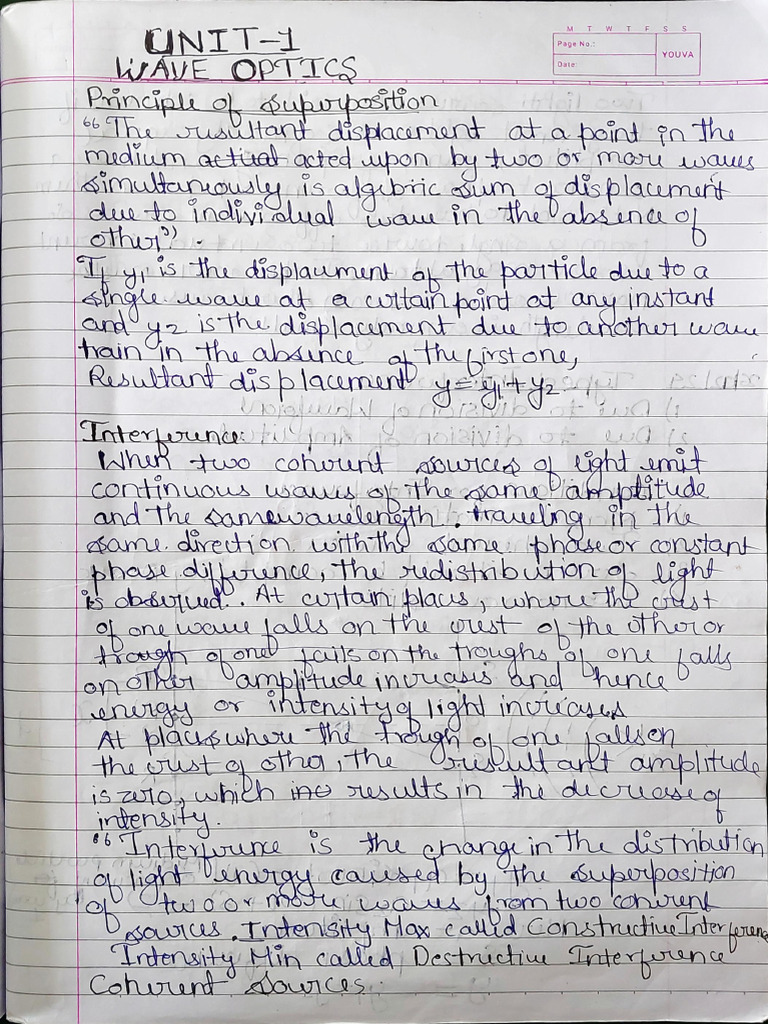 M T W T F S S
Page No.:
Date:
YOUVA
UNIT-1
WAVE OPTICS
Principle of superposition
"The resultant displacement at a point in the
medium actual acted upon by two or more waves
simultaneously is algebric sum of displacement
due to individual wave in the absence of
other".
If y1 is the displacement of the particle due to a
single wave at a certain point at any instant
and y2 is the displacement due to another wave
train in the absence of the first one,
Resultant displacement y = y1 + y2
Interference:
When two coherent sources of light emit
continuous waves of the same amptitude
and the same wavelength. traveling in the
same direction with the same phase or constant
phase difference, the redistribution of light
is observed. At certain places, where the crest
of one wave falls on the crest of the other or
trough of one falls on the troughs of one falls
on other amplitude increases and hence
energy or intensity of light increases
At places where the trough of one falls on
the crest of other, the resultant amplitude
is zero, which results in the decrease of
intensity.
"Interference is the change in the distribution
of light energy caused by the superposition
of two or more waves from two coherent
sources. Intensity Max called Constructive Interference
Intensity Min called Destructive Interference
Coherent sources.